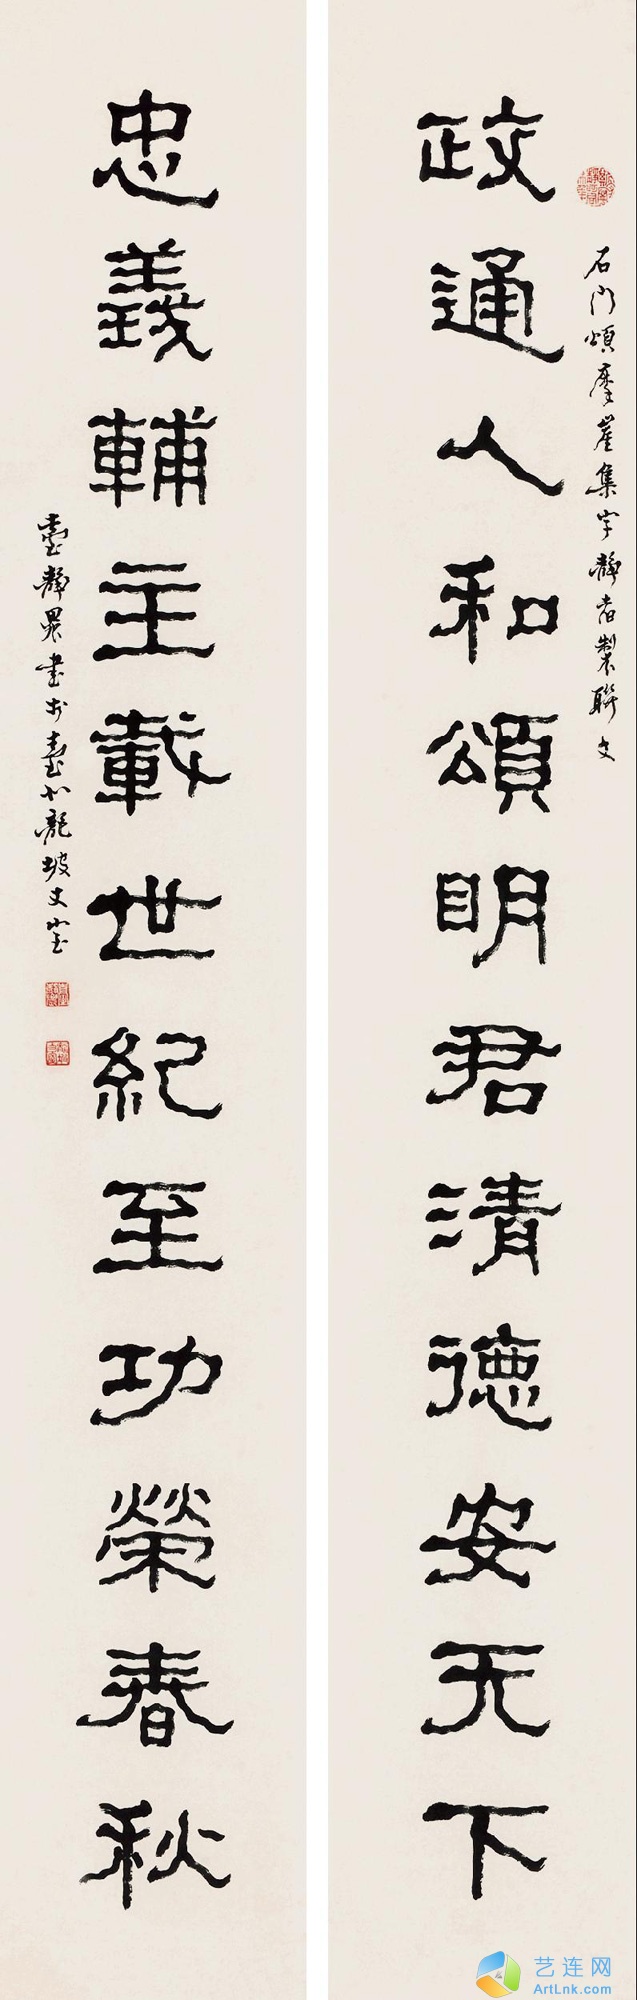 石门頌摩崖集字靜者製聯文
政通人和頌明君清德安天下
忠義輔主載世紀至功榮春秋
臺靜農書於臺北龍坡丈室
艺连网
ArtLnk.com